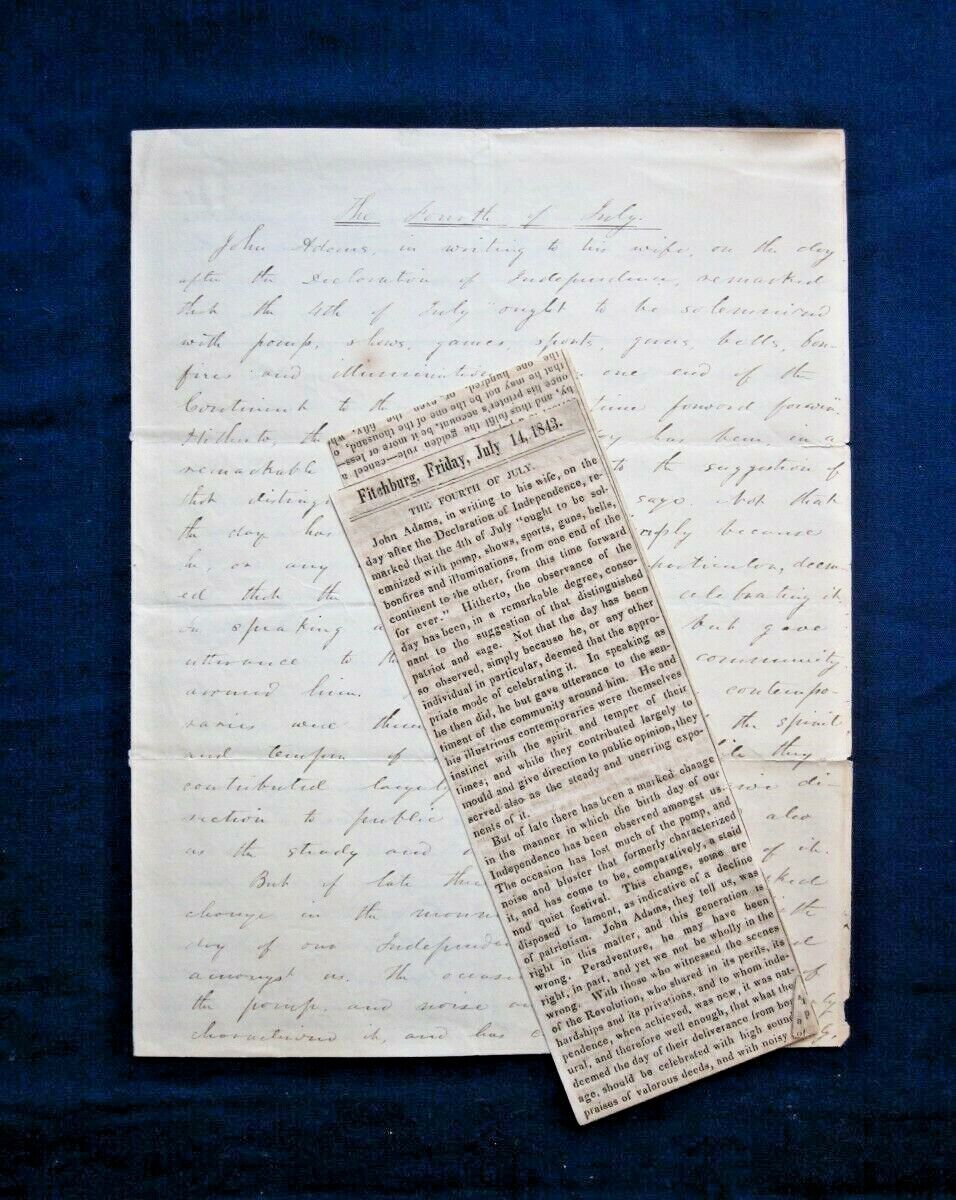 The Fourth of July.
John Adams, in writing to his wife, on the day
after the Declaration of Independence, remarked
that the 4th of July "ought to be solemnized
with pomp, shows, games, sports, guns, bells, bon-
fires and illuminations one end of the
Continent to the time forward forever"
Hitherto, the day has been, in a
remarkable to the suggestion of
that disting sage. Not that
the day has simply because
he, on any particular, deem-
ed that the celebrating it.
In speaking a but gave
utterance to the community
around him. contempo-
raries were them the spirit
and temper of while they
contributed largely give di-
rection to public also
as the steady and of it.
But of late there marked
change in the manner the
day of our Independence
amongst us. The occasion of
the pomp, and noise
characterized it, and has
by, and thus fulfil the golden rule—cancel
once his printer's account, be it more or less.
that he may be the one of the thousand,
one hundred. not be or, even the
Fitchburg, Friday, July 14, 1843.
THE FOURTH OF JULY.
John Adams, in writing to his wife, on the
day after the Declaration of Independence, re-
marked that the 4th of July "ought to be sol-
emnized with pomp, shows, sports, guns, bells,
bonfires and illuminations, from one end of the
continent to the other, from this time forward
for ever." Hitherto, the observance of the
day has been, in a remarkable degree, conso-
nant to the suggestion of that distinguished
patriot and sage. Not that the day has been
so observed, simply because he, or any other
individual in particular, deemed that the appro-
priate mode of celebrating it. In speaking as
he then did, he but gave utterance to the sen-
timent of the community around him. He and
his illustrious contemporaries were themselves
instinct with the spirit and temper of their
times; and while they contributed largely to
mould and give direction to public opinion, they
served also as the steady and unerring expo-
nents of it.
But of late there has been a marked change
in the manner in which the birth day of our
Independence has been observed amongst us.
The occasion has lost much of the pomp, and
noise and bluster that formerly characterized
it, and has come to be, comparatively, a staid
and quiet festival. This change, some are
disposed to lament, as indicative of a decline
of patriotism. John Adams, they tell us, was
right in this matter, and this generation is
wrong. Peradventure, he may have been
right, in part, and yet we not be wholly in the
wrong. With those who witnessed the scenes
of the Revolution, who shared in its perils, its
hardships and its privations, and to whom inde-
pendence, when achieved, was new, it was nat-
ural, and therefore well enough, that what they
deemed the day of their deliverance from bond-
age, should be celebrated with high sound
praises of valorous deeds, and with noisy